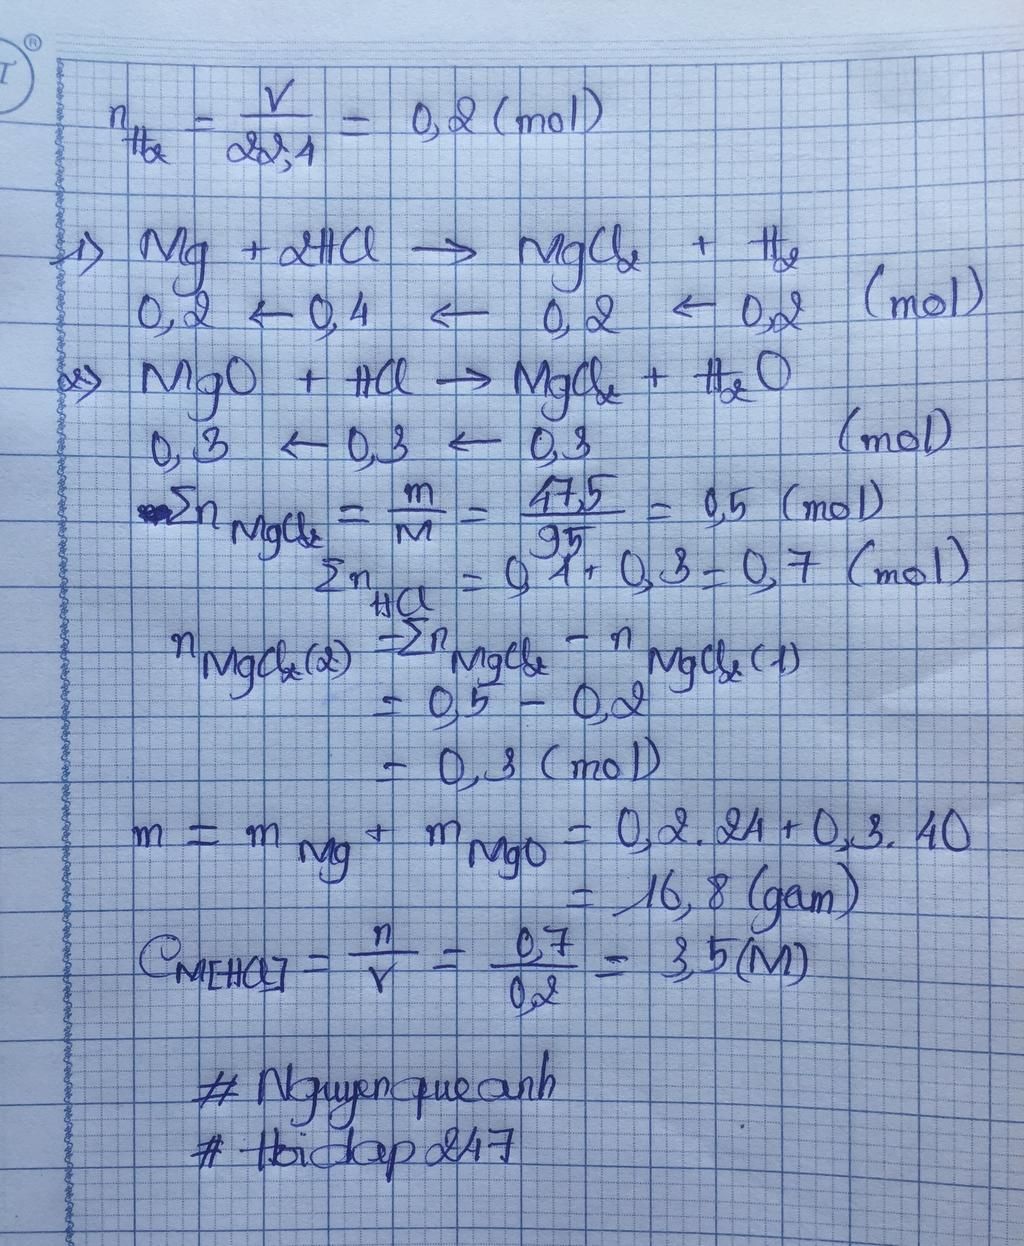 n_H₂ = V/22,4 = 0,2 (mol)
1) Mg + 2HCl → MgCl₂ + H₂
0,2 ← 0,4 ← 0,2 ← 0,2 (mol)
2) MgO + HCl → MgCl₂ + H₂O
0,3 ← 0,3 ← 0,3 (mol)
Σn_MgCl₂ = m/M = 47,5/95 = 0,5 (mol)
Σn_HCl = 0,4 + 0,3 = 0,7 (mol)
n_MgCl₂(2) = Σn_MgCl₂ - n_MgCl₂(1)
= 0,5 - 0,2
= 0,3 (mol)
m = m_Mg + m_MgO = 0,2. 24 + 0,3. 40
= 16,8 (gam)
C_M[HCl] = n/V = 0,7/0,2 = 3,5 (M)
# Nguyenqueanh
# Hoidap247